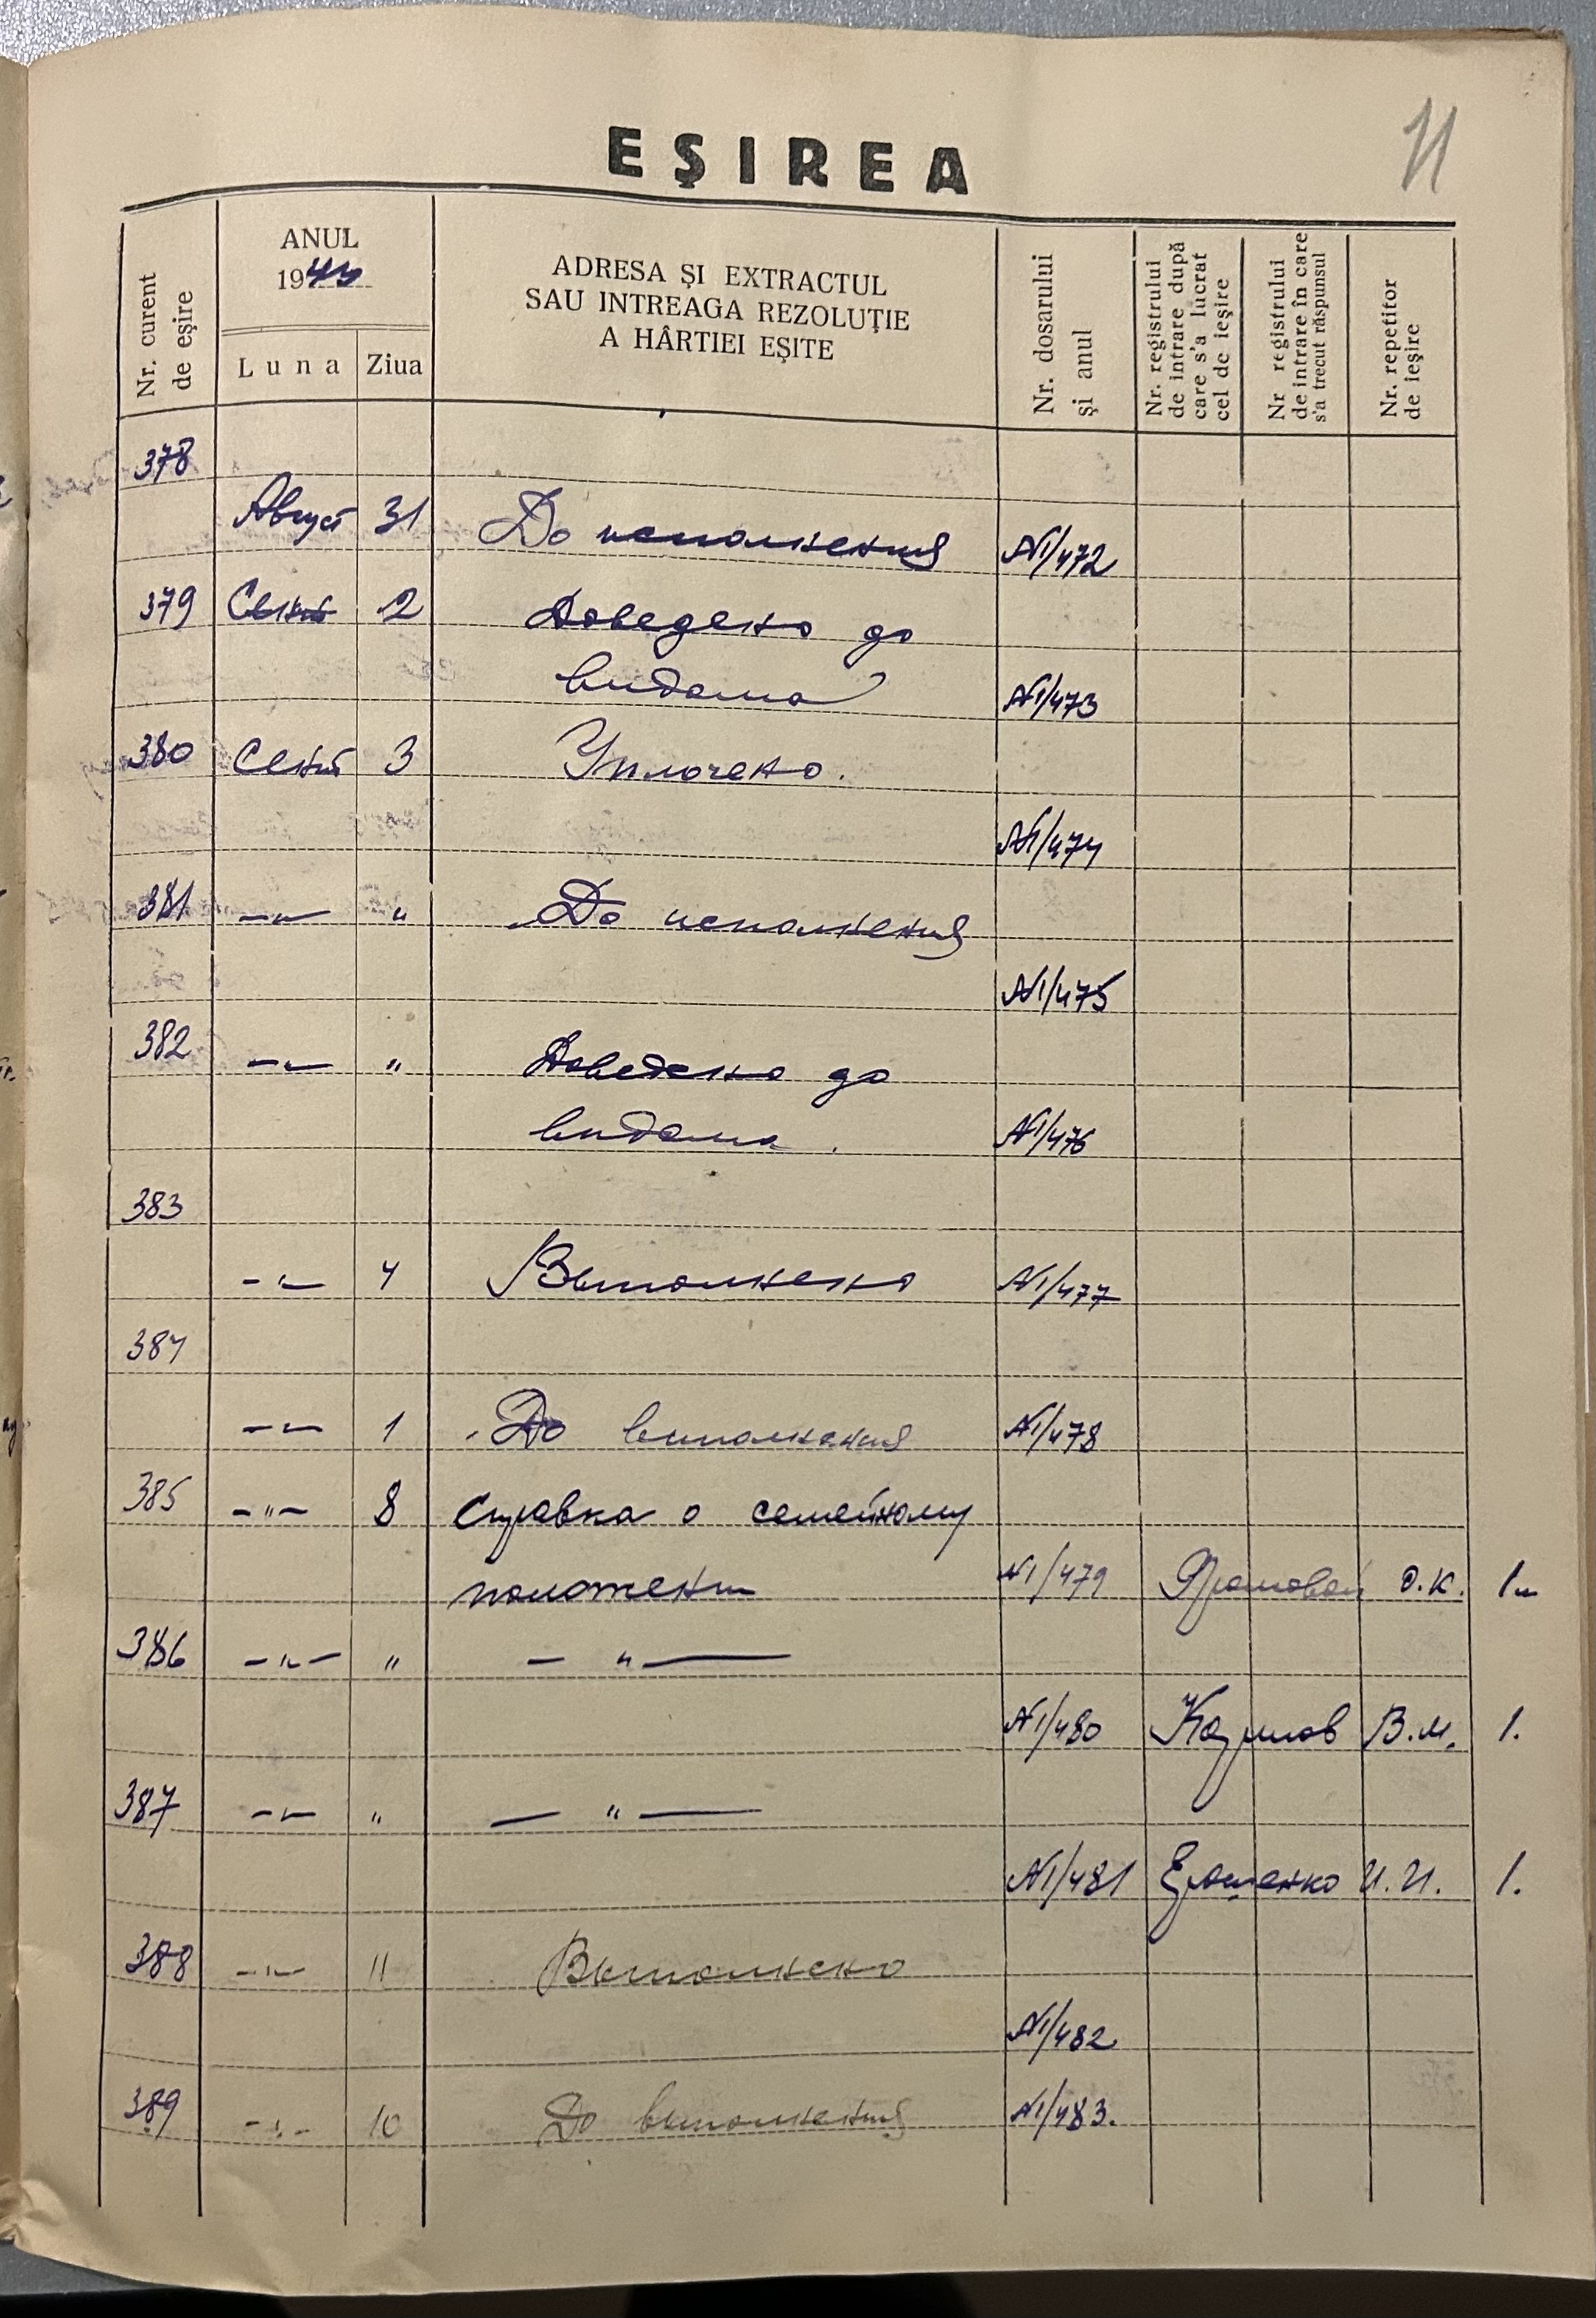 11
EŞIREA
Nr. curent de eşire
ANUL
1944
Luna
Ziua
ADRESA ŞI EXTRACTUL
SAU INTREAGA REZOLUŢIE
A HÂRTIEI EŞITE
Nr. dosarului şi anul
Nr. registrului de intrare după care s'a lucrat cel de ieşire
Nr registrului de intrare în care s'a trecut răspunsul
Nr. repetitor de ieşire
378
Август 31 До исполнения №1/472
379 Сент 2 Доведено до
видома №1/473
380 Сент 3 Уплочено.
№1/474
381 —"— " До исполнения
№1/475
382 —"— " Доведено до
видома. №1/476
383
—"— 4 Выполнено №1/477
384
—"— 1 До выполнения №1/478
385 —"— 8 Справка о семейному
положении №1/479 О.К. 1
386 —"— " — " —
№1/480 Козлов В.М. 1.
387 —"— " — " —
№1/481 Ерошенко И.И. 1.
388 —"— 11 Выполнено
№1/482
389 —"— 10 До выполнения №1/483.